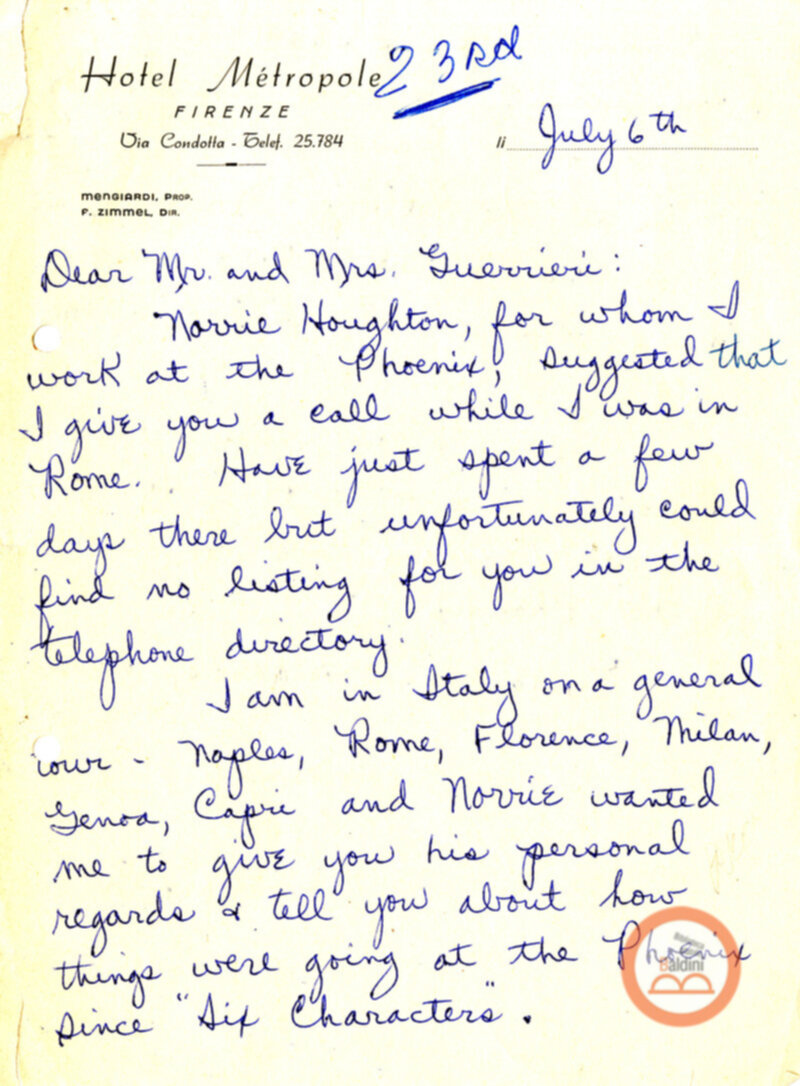 Hotel Métropole
23rd
FIRENZE
Via Condotta - Telef. 25.784
li July 6th
MENGIARDI, PROP.
F. ZIMMEL, DIR.
Dear Mr. and Mrs. Guerrieri:
Norrie Houghton, for whom I
work at the Phoenix, suggested that
I give you a call while I was in
Rome. Have just spent a few
days there but unfortunately could
find no listing for you in the
telephone directory.
I am in Italy on a general
tour - Naples, Rome, Florence, Milan,
Genoa, Capri and Norrie wanted
me to give you his personal
regards & tell you about how
things were going at the Phoenix
since "Six Characters".
Baldini